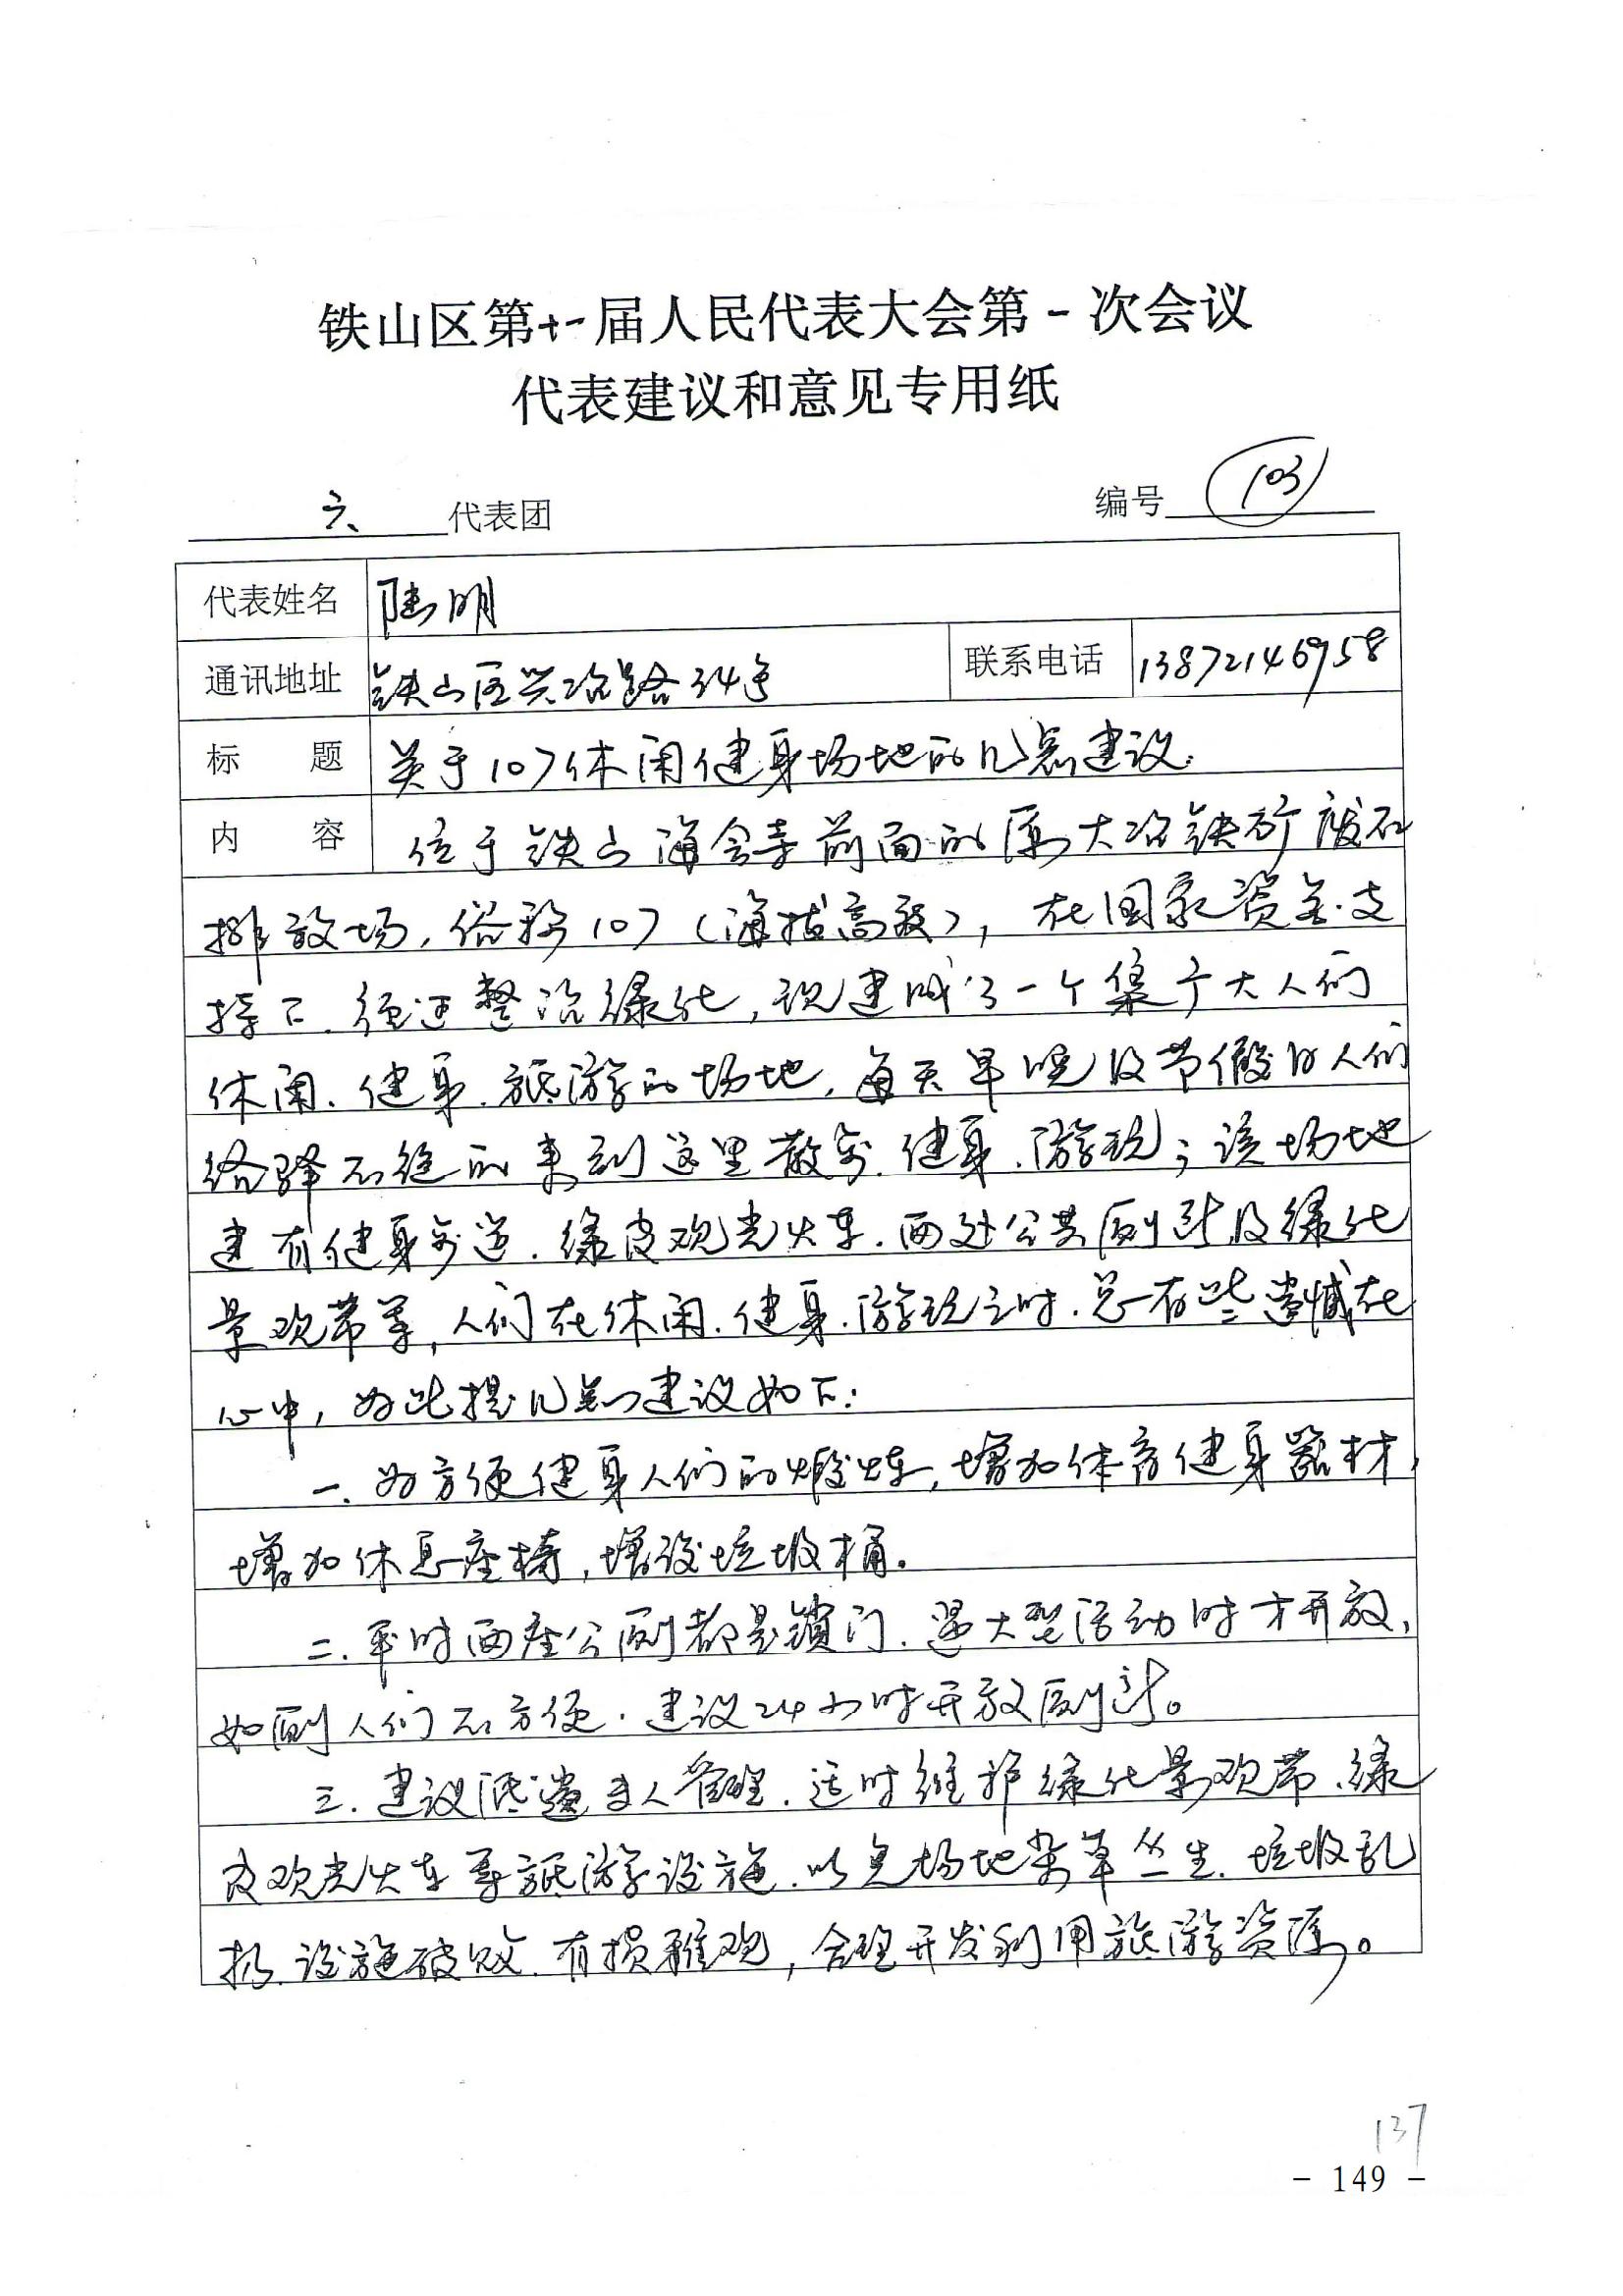 铁山区第十一届人民代表大会第一次会议
代表建议和意见专用纸
六 代表团 编号 103
代表姓名 陆明
通讯地址 铁山区兴冶路34号 联系电话 13872146958
标 题 关于107休闲健身场地的几点建议
内 容 位于铁山海会寺前面的原大冶铁矿废石
排放场，俗称107（海拔高程），在国家资金支
持下．经过整治绿化，现建成了一个集广大人们
休闲．健身．旅游的场地，每天早晚及节假日人们
络驿不绝的来到这里散步．健身．游玩；该场地
建有健身步道．绿皮观光火车．两处公共厕所及绿化
景观带等，人们在休闲．健身．游玩之时．总有些遗憾在
心中，为此提几点建议如下：
一．为方便健身人们的煅炼，增加体育健身器材，
增加休息座椅，增设垃圾桶。
二．平时两座公厕都是锁门．遇大型活动时才开放，
如厕人们不方便．建议24小时开放厕所。
三．建议派遣专人管理．适时维护绿化景观带、绿
皮观光火车等旅游设施．以免场地杂草丛生．垃圾乱
扔．设施破败．有损雅观，合理开发利用旅游资源。
137
- 149 -